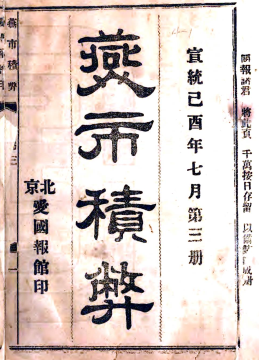 閱報諸君 將此頁 千萬按日存留 以備裝訂成册
宣統己酉年七月第三册
燕市積弊
北京愛國報館印
燕市積弊 三